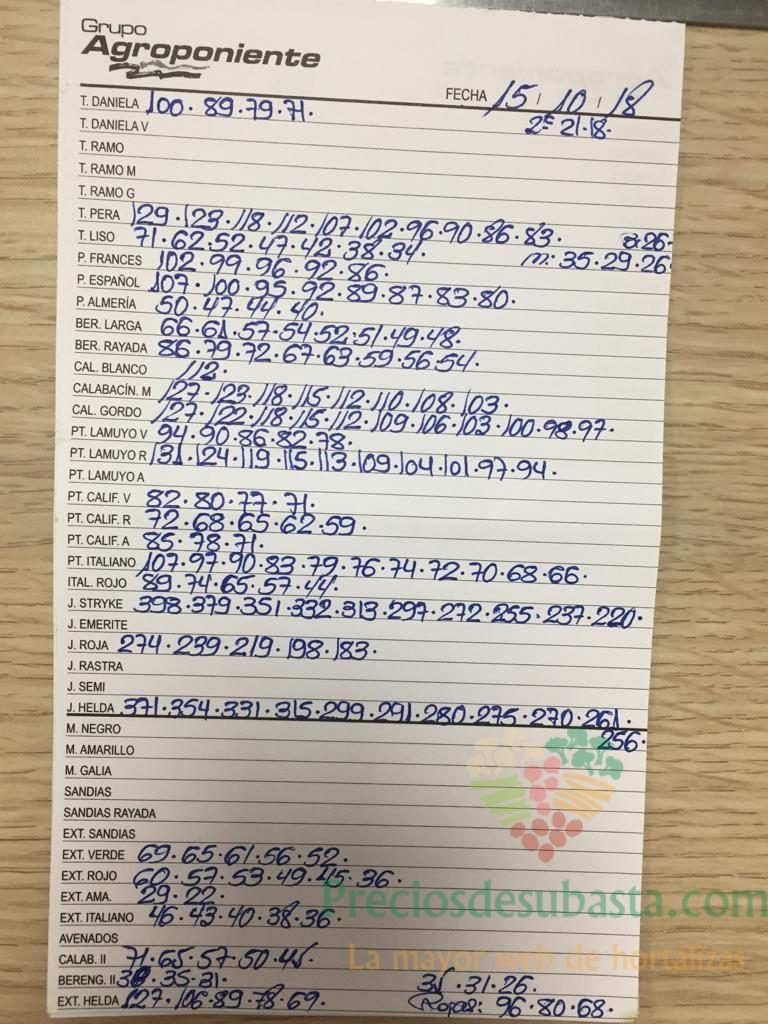 Grupo
Agroponiente
FECHA 15 / 10 / 18
T. DANIELA 100. 89.79.71.
T. DANIELA V 2ª 21.18.
T. RAMO
T. RAMO M
T. RAMO G
T. PERA 129.123.118.112.107.102.96.90.86.83. 26.
T. LISO 71.62.52.47.42.38.34. m: 35.29.26
P. FRANCES 102.99.96.92.86.
P. ESPAÑOL 107.100.95.92.89.87.83.80.
P. ALMERÍA 50.47.44.40.
BER. LARGA 66.61.57.54.52.51.49.48.
BER. RAYADA 86.79.72.67.63.59.56.54.
CAL. BLANCO 112.
CALABACÍN. M 127.123.118.115.112.110.108.103.
CAL. GORDO 127.122.118.115.112.109.106.103.100.98.97.
PT. LAMUYO V 94.90.86.82.78.
PT. LAMUYO R 131.124.119.115.113.109.104.101.97.94.
PT. LAMUYO A
PT. CALIF. V 82.80.77.71.
PT. CALIF. R 72.68.65.62.59.
PT. CALIF. A 85.78.71.
PT. ITALIANO 107.97.90.83.79.76.74.72.70.68.66.
ITAL. ROJO 89.74.65.57.44.
J. STRYKE 398.379.351.332.313.297.272.255.237.220.
J. EMERITE
J. ROJA 274.239.219.198.183.
J. RASTRA
J. SEMI
J. HELDA 371.354.331.315.299.291.280.275.270.261.
M. NEGRO 256.
M. AMARILLO
M. GALIA
SANDIAS
SANDIAS RAYADA
EXT. SANDIAS
EXT. VERDE 69.65.61.56.52.
EXT. ROJO 60.57.53.49.45.36.
EXT. AMA. 29.22.
EXT. ITALIANO 46.43.40.38.36.
Preciosdesubasta.com
AVENADOS
CALAB. II 71.65.57.50.45.
La mayor web de hortalizas
BERENG. II 38.35.31. 35.31.26.
EXT. HELDA 127.106.89.78.69. Rojas: 96.80.68.